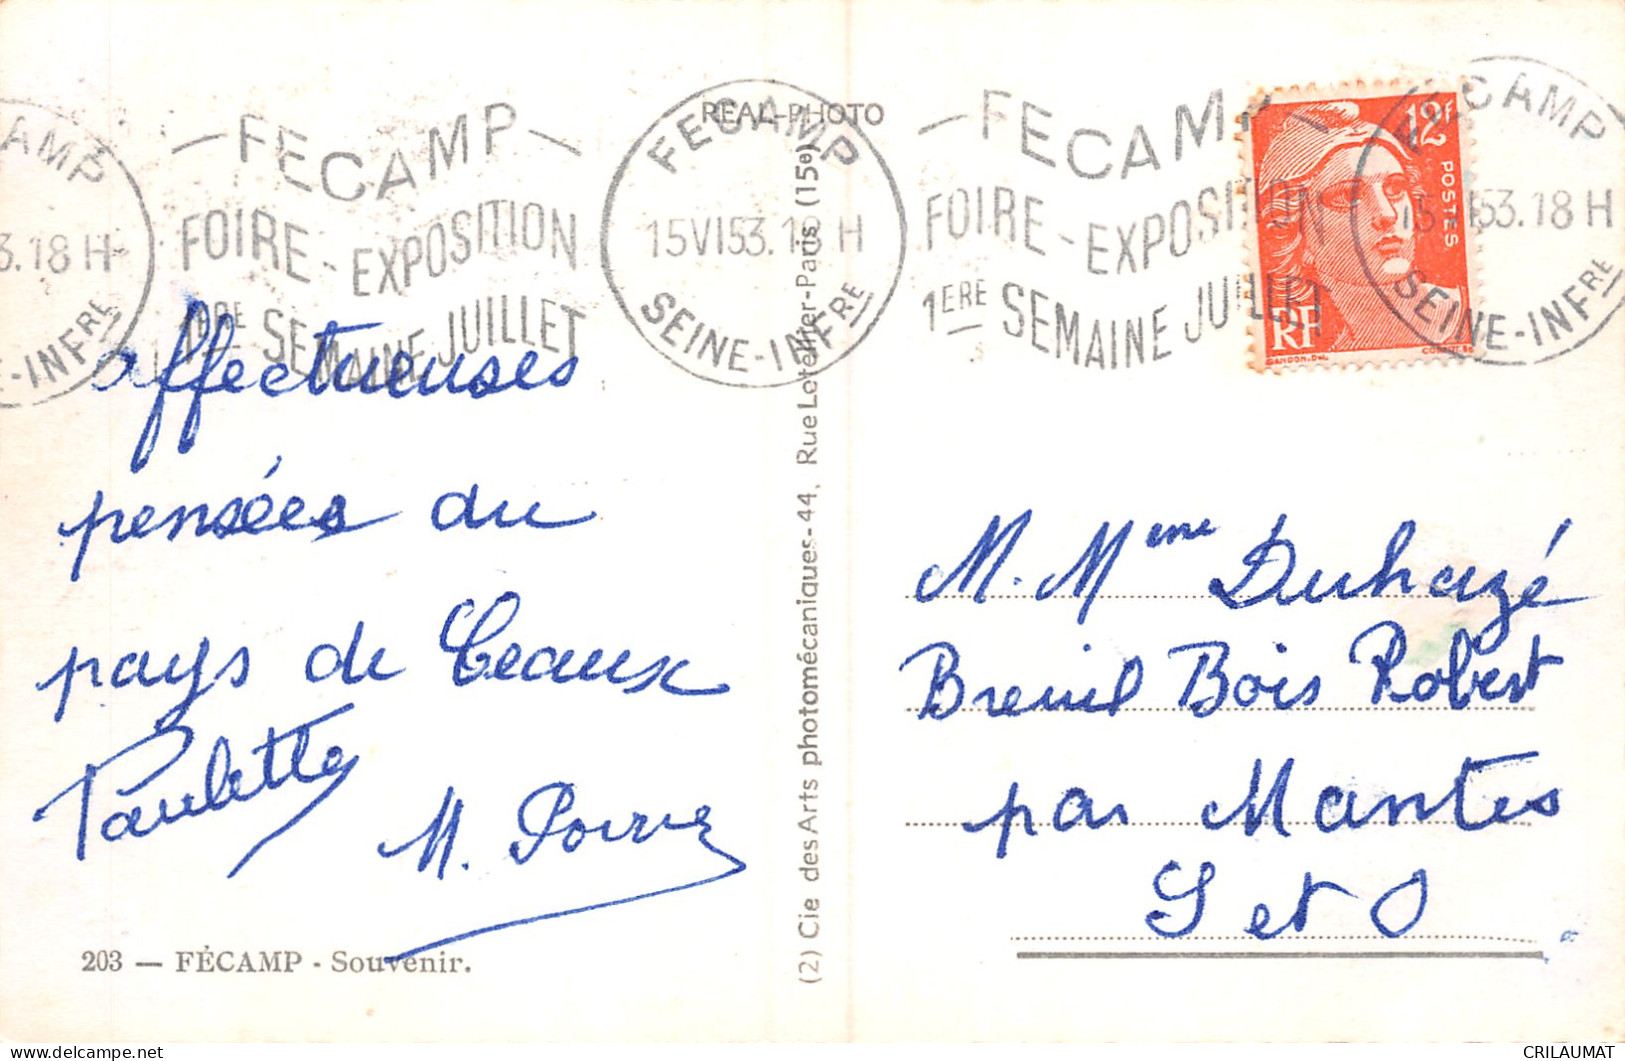 REAL-PHOTO
CAMP
3.18 H
E-INFRE
— FECAMP —
FOIRE - EXPOSITION
1ERE SEMAINE JUILLET
FECAMP
15 VI 53. 18 H
SEINE-INFRE
— FECAMP —
FOIRE - EXPOSITION
1ERE SEMAINE JUILLET
FECAMP
15 VI 53. 18 H
SEINE-INFRE
12F
POSTES
RF
GANDON. Del.
affectueuses
pensées du
pays de Ceaux
Paulette
203 — FÉCAMP - Souvenir.
(2) Cie des Arts photomécaniques-44, Rue Letellier-Paris (15e)
M. Mme Duhazé
Breuil Bois Robert
par Mantes
S et O
CRILAUMAT